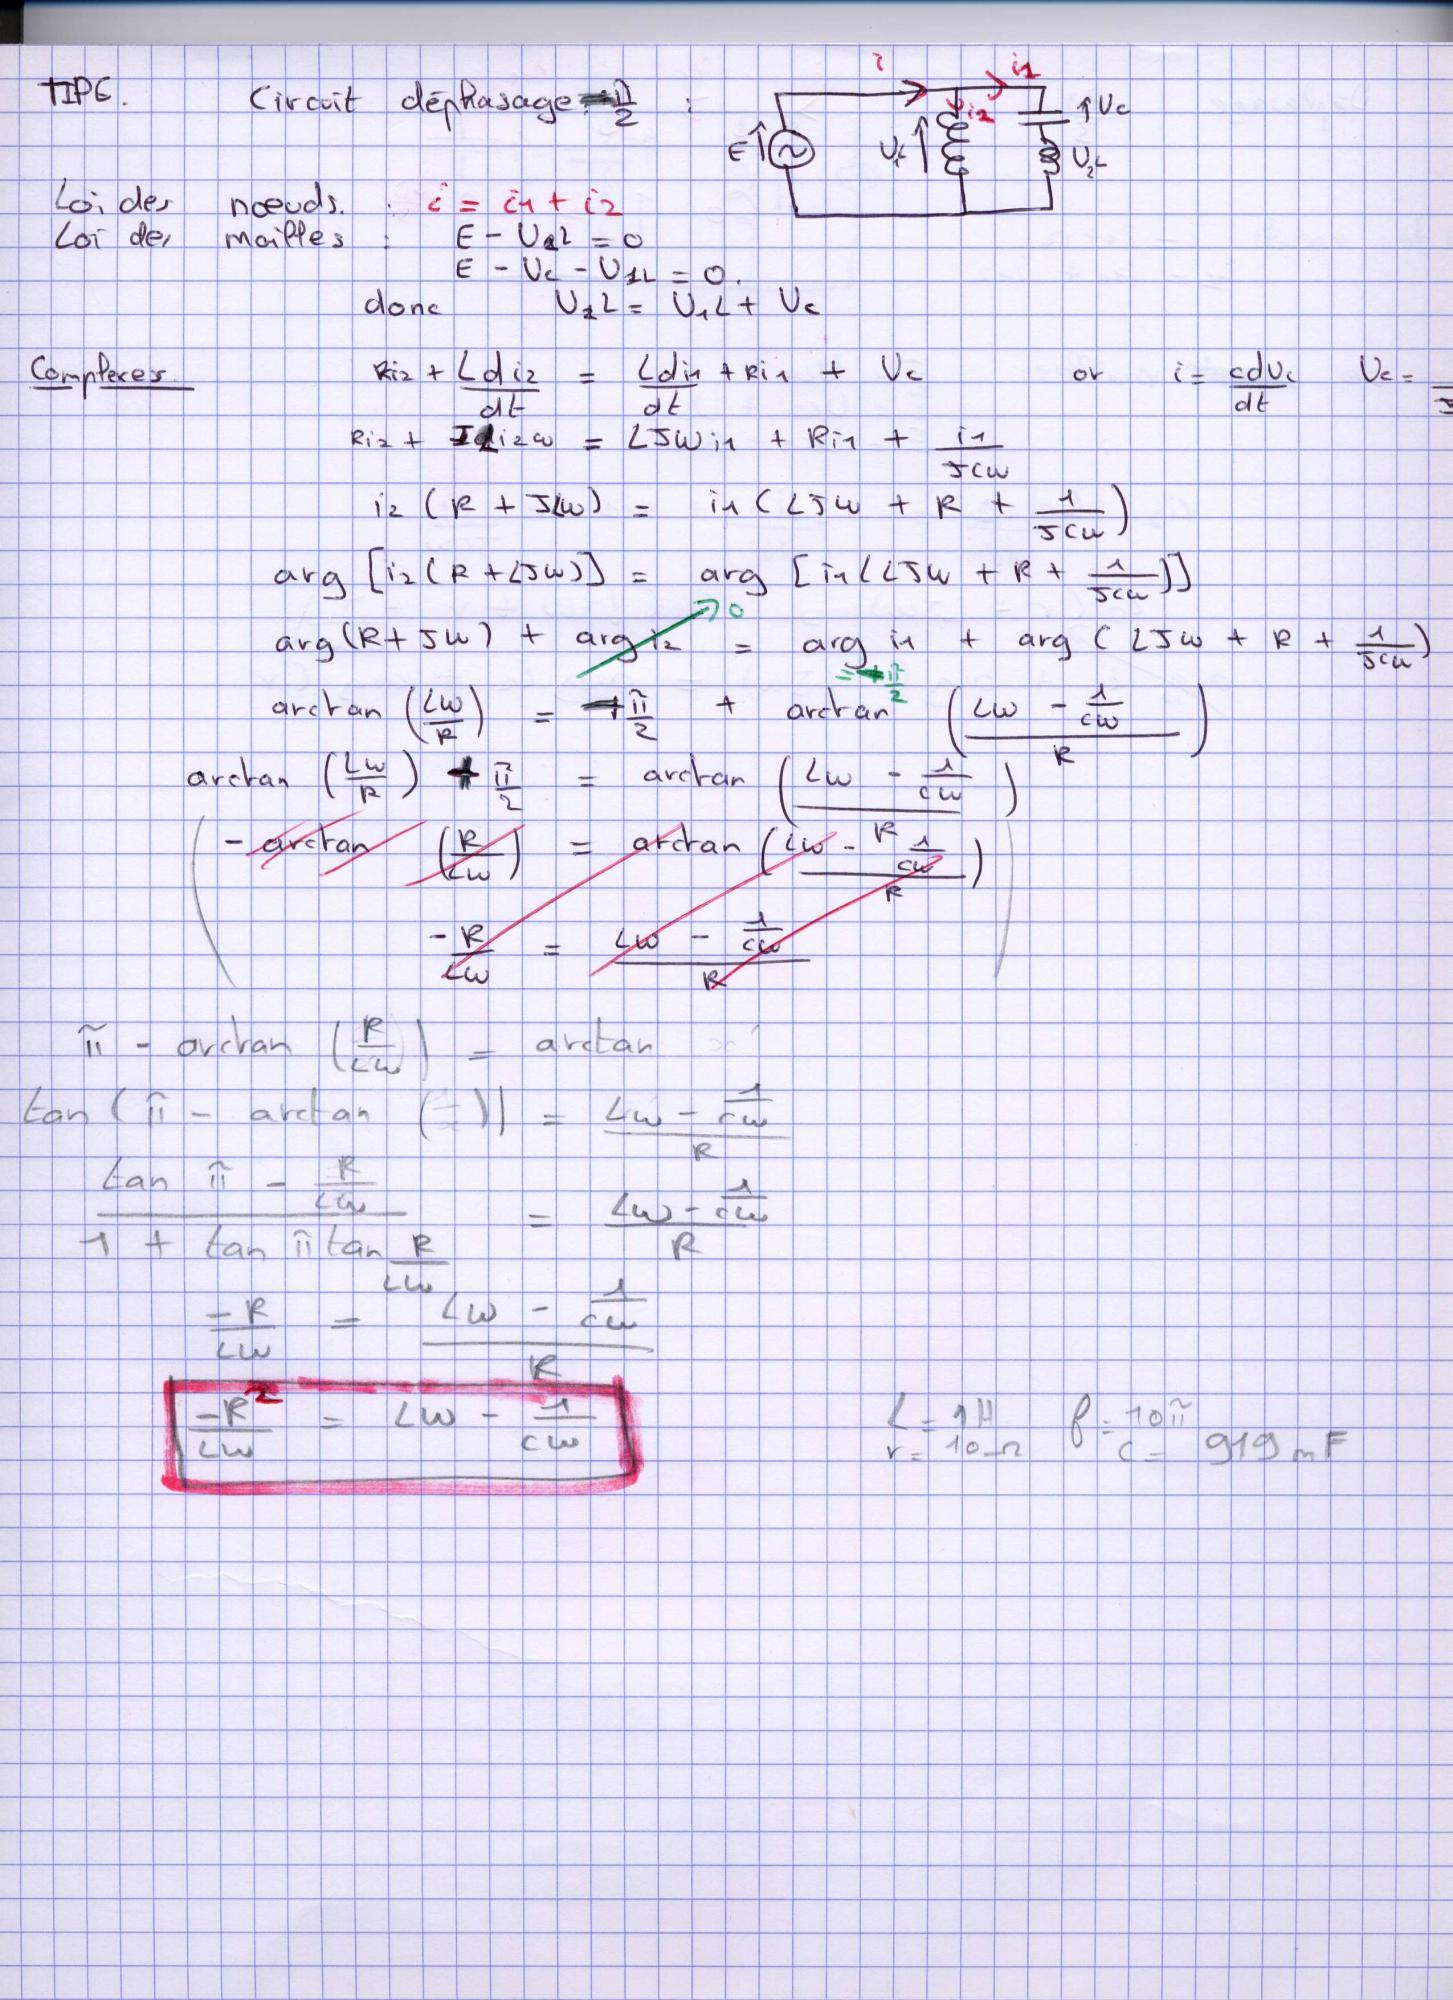 TIPE. Circuit déphasage π/2 :
i i1
i2 Uc
E U2L
Loi des nœuds. : i = i1 + i2
Loi des mailles : E - U2L = 0
E - Uc - U1L = 0.
donc U2L = U1L + Uc
Complexes. Ri2 + L di2/dt = L di1/dt + Ri1 + Uc or i = c dUc/dt Uc =
Ri2 + JLi2ω = LJωi1 + Ri1 + i1/Jcω
i2 (R + JLω) = i1 (LJω + R + 1/Jcω)
arg [i2 (R + LJω)] = arg [i1 (LJω + R + 1/Jcω)]
arg (R + Jω) + arg i2 → 0 = arg i1 + arg (LJω + R + 1/Jcω)
= +π/2
arctan (Lω/R) = +π/2 + arctan ((Lω - 1/cω)/R)
arctan (Lω/R) + π/2 = arctan ((Lω - 1/cω)/R)
(- arctan (R/Lω) = arctan ((Lω - 1/cω)/R)
-R/Lω = (Lω - 1/cω)/R)
π - arctan (R/Lω) = arctan
tan (π - arctan ( )) = (Lω - 1/cω)/R
(tan π - R/Lω)/(1 + tan π tan R/Lω) = (Lω - 1/cω)/R
-R/Lω = (Lω - 1/cω)/R
-R²/Lω = Lω - 1/cω
L = 1H f = 10π
r = 10Ω c = 919 mF